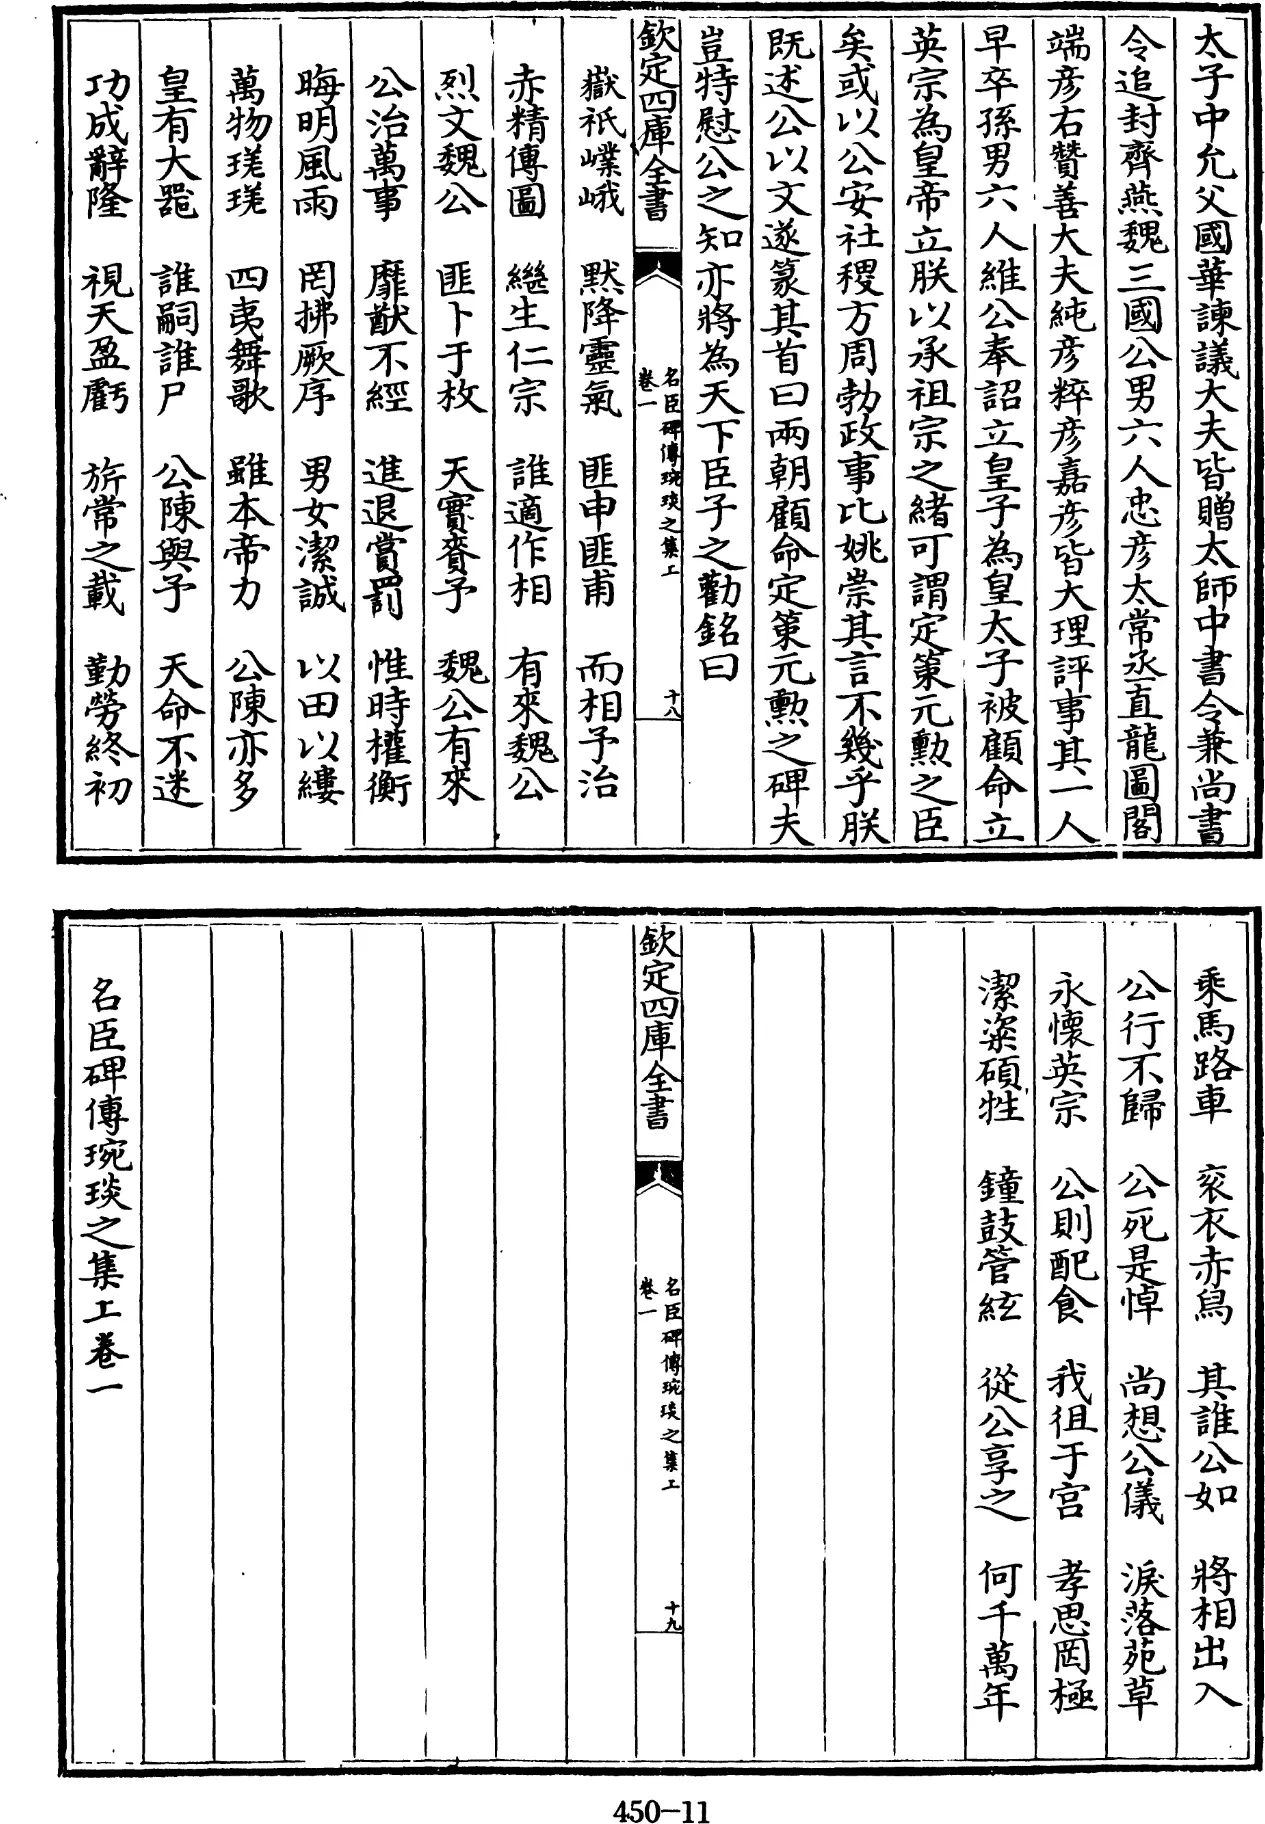 太子中允父國華諫議大夫皆贈太師中書令兼尚書
令追封齊燕魏三國公男六人忠彥太常丞直龍圖閣
端彥右贊善大夫純彥粹彥嘉彥皆大理評事其一人
早卒孫男六人維公奉詔立皇子為皇太子被顧命立
英宗為皇帝立朕以承祖宗之緒可謂定策元勳之臣
矣或以公安社稷方周勃政事比姚崇其言不幾乎朕
既述公以文遂篆其首曰兩朝顧命定策元勳之碑夫
豈特慰公之知亦將為天下臣子之勸銘曰
欽定四庫全書
名臣碑傳琬琰之集上
卷一
十八
嶽祇嶫峨 默降靈氣 匪申匪甫 而相予治
赤精傳圖 繼生仁宗 誰適作相 有來魏公
烈文魏公 匪卜于枚 天實賚予 魏公有來
公治萬事 靡猷不經 進退賞罰 惟時權衡
晦明風雨 罔拂厥序 男女潔誠 以田以縷
萬物瑳瑳 四夷舞歌 雖本帝力 公陳亦多
皇有大器 誰嗣誰尸 公陳與予 天命不迷
功成辭隆 視天盈虧 旂常之載 勤勞終初
乘馬路車 衮衣赤舄 其誰公如 將相出入
公行不歸 公死是悼 尚想公儀 淚落苑草
永懷英宗 公則配食 我徂于宮 孝思罔極
潔粢碩牲 鐘鼓管絃 從公享之 何千萬年
欽定四庫全書
名臣碑傳琬琰之集上
卷一
十九
名臣碑傳琬琰之集上卷一
450-11